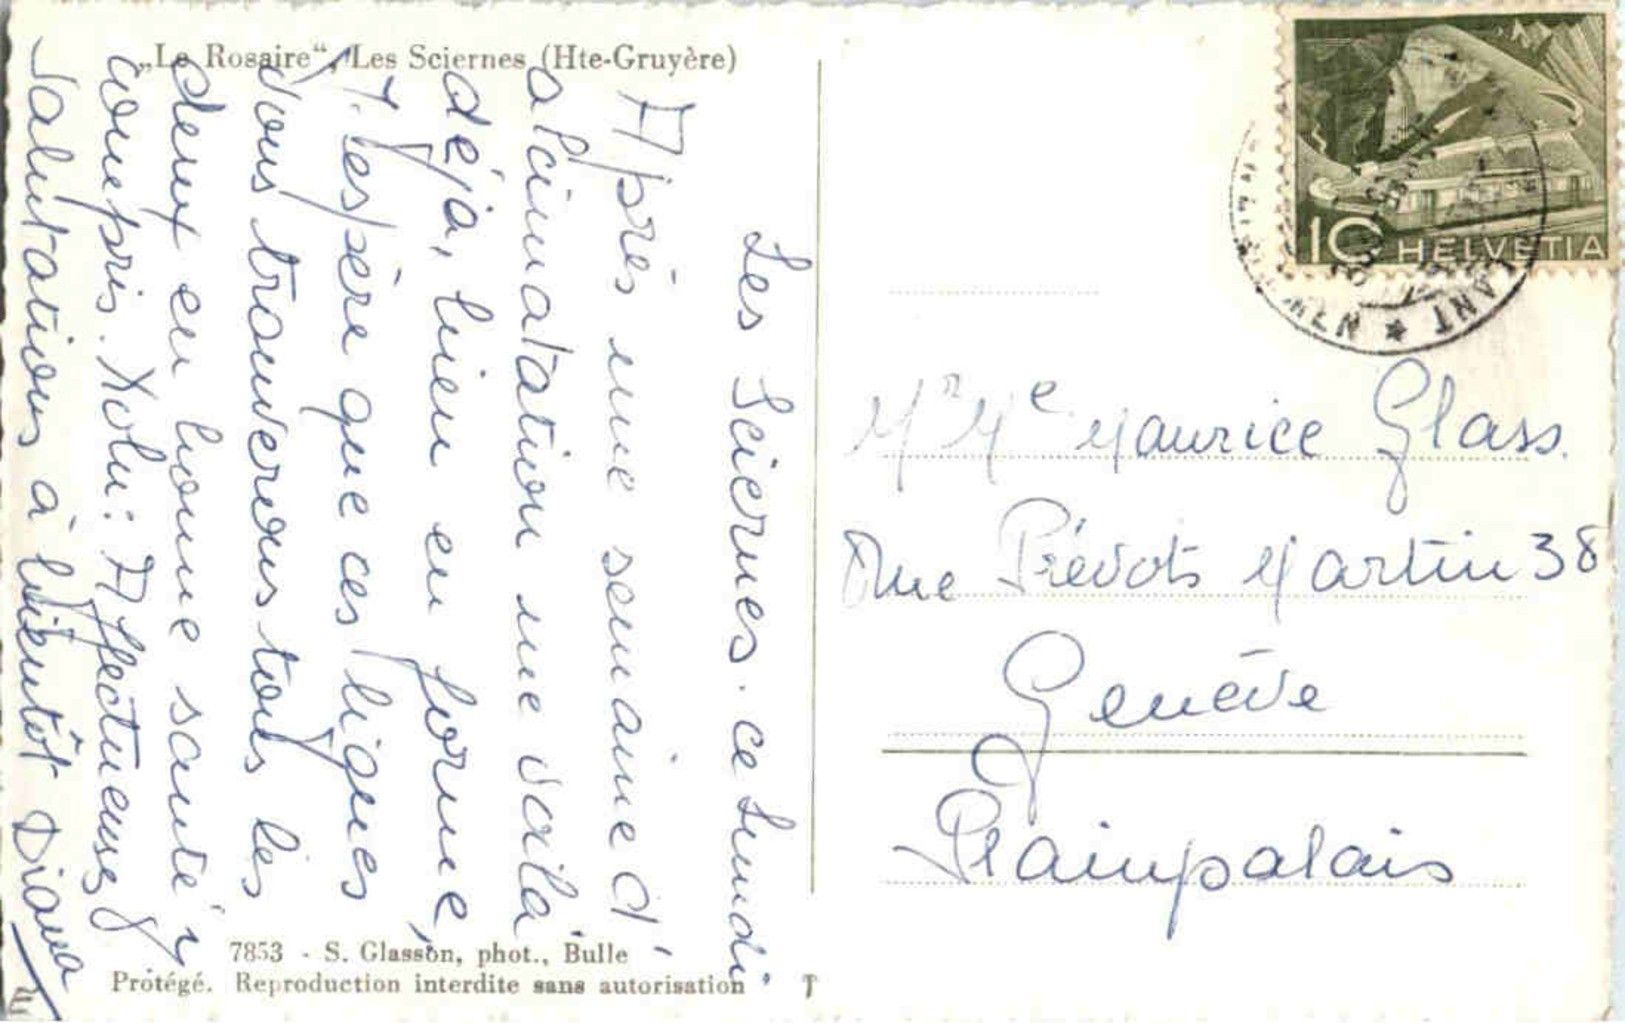 „Le Rosaire“, Les Sciernes (Hte-Gruyère)
Les Sciernes. ce Lundi
Après une semaine d'
alcimatation me voila
déja, bien en forme,
J'espère que ces lignes
vous trouverons tous les
deux en bonne santé y
compris Xolu: Affectueuses
Salutations à bientôt Diana
7853 - S. Glasson, phot., Bulle
Protégé. Reproduction interdite sans autorisation
HELVETIA
10
Mr Me Maurice Glass.
Rue Prévots Martin 38
Genève
Plainpalais